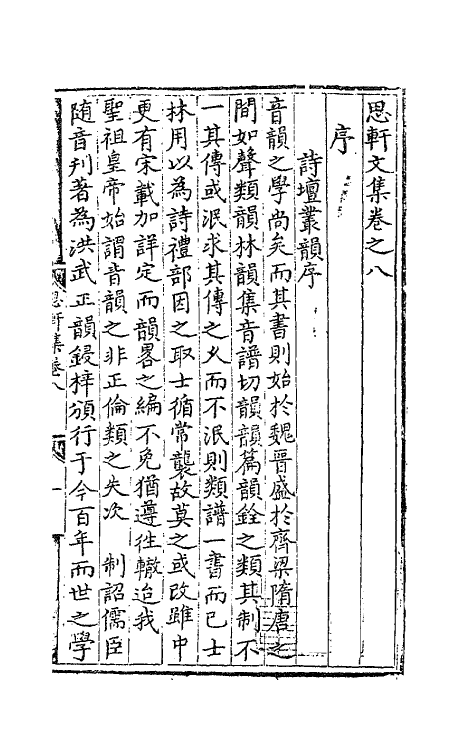 思軒文集卷之八
序
詩壇叢韻序
音韻之學尚矣而其書則始於魏晉盛於齊梁隋唐之
間如聲類韻林韻集音譜切韻韻篇韻銓之類其制不
一其傳或泯求其傳之乆而不泯則類譜一書而已士
林用以為詩禮部因之取士循常襲故莫之或改雖中
更有宋載加詳定而韻畧之編不免猶遵徃轍迨我
聖祖皇帝始謂音韻之非正倫類之失次　制詔儒臣
随音刋著為洪武正韻鋟梓頒行于今百年而世之學
思軒集卷八
一